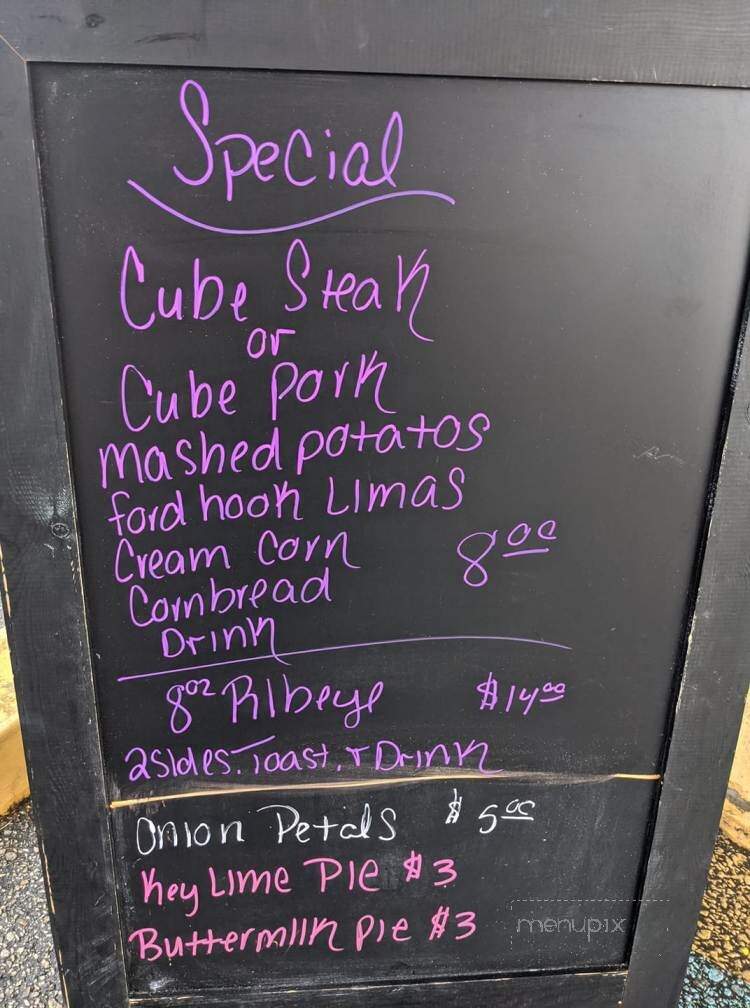 Special
Cube Steak
or
Cube Pork
mashed potatos
ford hook Limas
Cream Corn 8.00
Cornbread
Drink
8oz Ribeye $14.00
2 Sides. Toast. + Drink
Onion Petals $5.00
Key Lime Pie $3
Buttermilk Pie $3
menupix